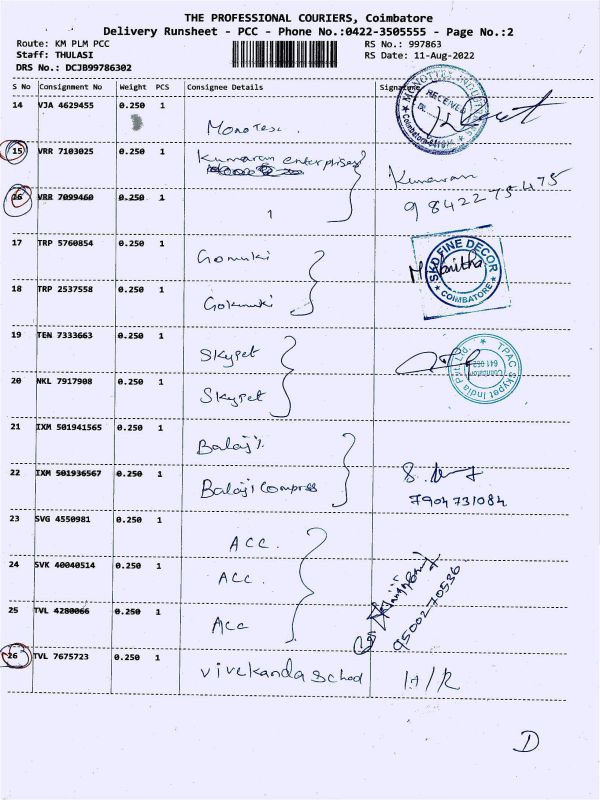 THE PROFESSIONAL COURIERS, Coimbatore
Delivery Runsheet - PCC - Phone No.:0422-3505555 - Page No.:2
Route: KM PLM PCC RS No.: 997863
Staff: THULASI RS Date: 11-Aug-2022
DRS No.: DCJB99786302
S No Consignment No Weight PCS Consignee Details Signature
14 VJA 4629455 0.250 1
MONOTEX INDUSTRIES
RECEIVED
Coimbatore
Monotex.
15 VRR 7103025 0.250 1 Kumaran enterprises
Kumaran
16 VRR 7099460 0.250 1
98422 75475
1
17 TRP 5760854 0.250 1 Gomuki
SKD FINE DECOR
COIMBATORE
18 TRP 2537558 0.250 1 Gokmuki
19 TEN 7333663 0.250 1 Skypet
TPAC Skypet India Pvt Ltd
Coimbatore
641 062
20 NKL 7917908 0.250 1 Skypet
21 IXM 501941565 0.250 1 Balaji
22 IXM 501936567 0.250 1 Balaji Compress
7904731084
23 SVG 4550981 0.250 1 ACC.
24 SVK 40040514 0.250 1 ACC.
95002-70536
25 TVL 4280066 0.250 1 ACC
26 TVL 7675723 0.250 1 vivekanda school H/R
D